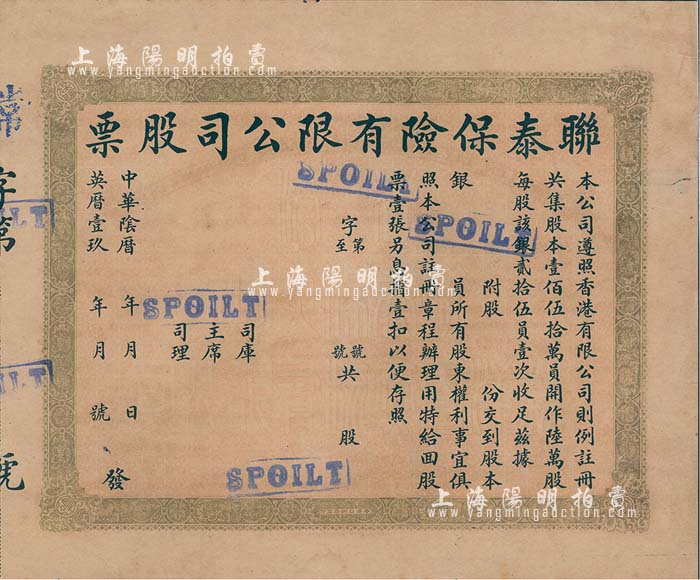 上海陽明拍賣
www.yangmingauction.com
聯泰保險有限公司股票
本公司遵照香港有限公司則例註冊
共集股本壹佰伍拾萬員開作陸萬股
每股該銀貳拾伍員壹次收足茲據
附股 份交到股本
銀 員所有股東權利事宜俱
照本公司註冊章程辦理用特給回股
票壹張另息摺壹扣以便存照
字第 號
至 號共 股
司庫
主席
司理
中華陰曆 年 月 日 發
英曆壹玖 年 月 號
字第 號
SPOILT
SPOILT
SPOILT
SPOILT
上海陽明拍賣
www.yangmingauction.com
上海陽明拍賣
www.yangmingauction.com